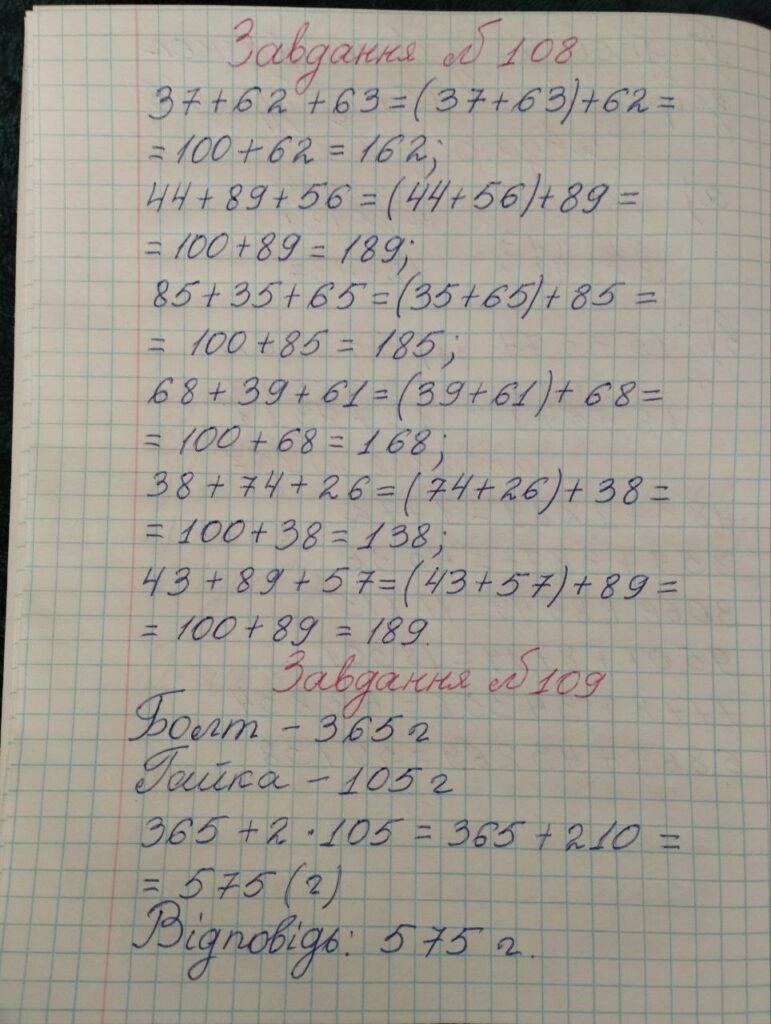 Завдання № 108
37+62+63=(37+63)+62=
=100+62=162;
44+89+56=(44+56)+89=
=100+89=189;
85+35+65=(35+65)+85=
=100+85=185;
68+39+61=(39+61)+68=
=100+68=168;
38+74+26=(74+26)+38=
=100+38=138;
43+89+57=(43+57)+89=
=100+89=189.
Завдання №109
Болт - 365 г
Гайка - 105 г
365+2·105=365+210=
=575 (г)
Відповідь: 575 г.